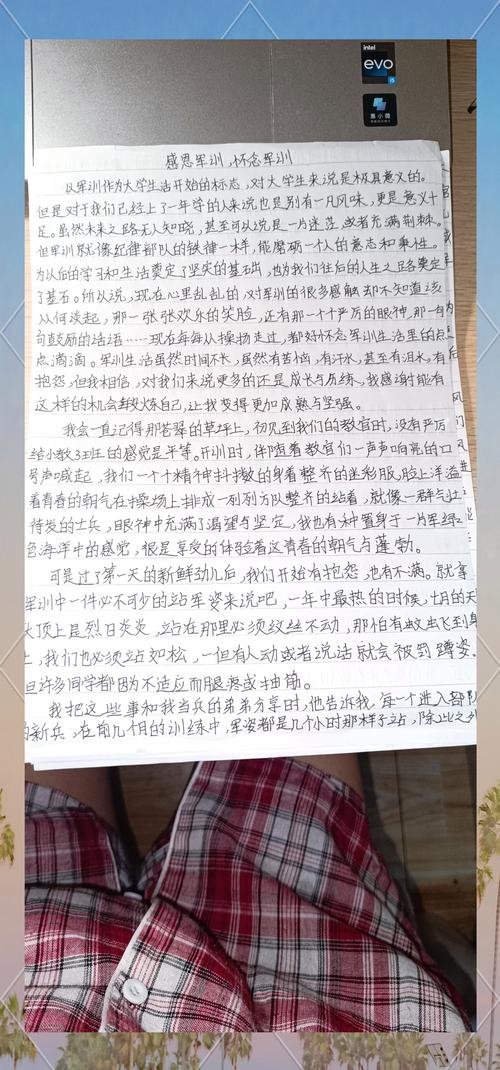 intel
evo
i5
惠小微
感恩军训,怀念军训
以军训作为大学生活开始的标志,对大学生来说是极具意义的。
但是对于我们已经上了一年学的人来说也是别有一凡风味,更是意义十
足。虽然未来之路无人知晓,甚至可以说是一片迷茫或者充满荆棘。
但军训就像纪律部队的铁律一样,能磨砺一个人的意志和秉性。
为以后的学习和生活奠定了坚实的基础,也为我们往后的人生之路奠定
了基石。所以说,现在心里乱乱的,对军训的很多感触却不知道该
从何谈起,那一张张欢乐的笑脸,还有那一个个严厉的眼神,那一句
句鼓励的话语……现在每每从操场走过,都好怀念军训生活里的点
点滴滴。军训生活虽然时间不长,虽然有苦恼,有汗水,甚至有泪水,有
抱怨,但我相信,对我们来说更多的还是成长与历练,我感谢能有
这样的机会锻炼自己,让我变得更加成熟与坚强。
我会一直记得那苍翠的草坪上,初见到我们的教官时,没有严厉
给小教了到的感觉是平等。开训时,伴随着教官们一声声响亮的口
号声喊起,我们一个个精神抖擞的身着整齐的迷彩服,脸上洋溢
着青春的朝气在操场上排成一列列方队整齐的站着,就像一群气壮
待发的士兵,眼神中充满了渴望与坚定,我也有种置身于一片军绿
色海洋中的感觉,很是享受的体验着这青春的朝气与蓬勃。
可是过了第一天的新鲜劲儿后,我们开始有抱怨,也有不满。就拿
军训中一件必不可少的站军姿来说吧,一年中最热的时候,七月的天
头顶上是烈日炎炎,站在那里必须纹丝不动,那怕有蚊虫飞到身
上,我们也必须站如松,一但有人动或者说话就会被罚蹲姿。
但许多同学都因为不适应而腿疼或抽筋。
我把这些事和我当兵的弟弟分享时,他告诉我,每一个进入部队
的新兵,在前几个月的训练中,军姿都是几个小时那样子站,除此之外